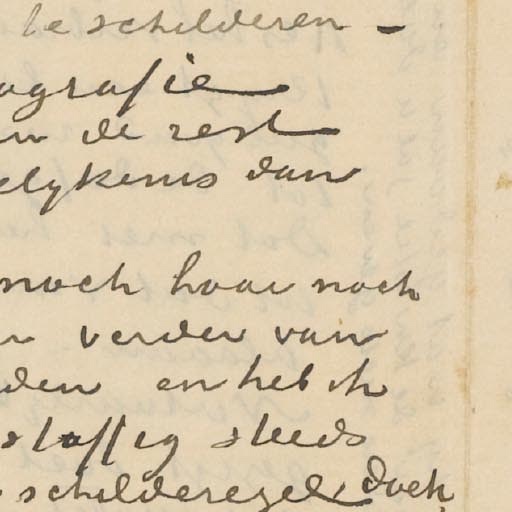 beschilderen –
ografie
n de rest
elykenis dan
noch haar noch
n verder van
den en heb ik
stoffig steeds
schilderezel doek